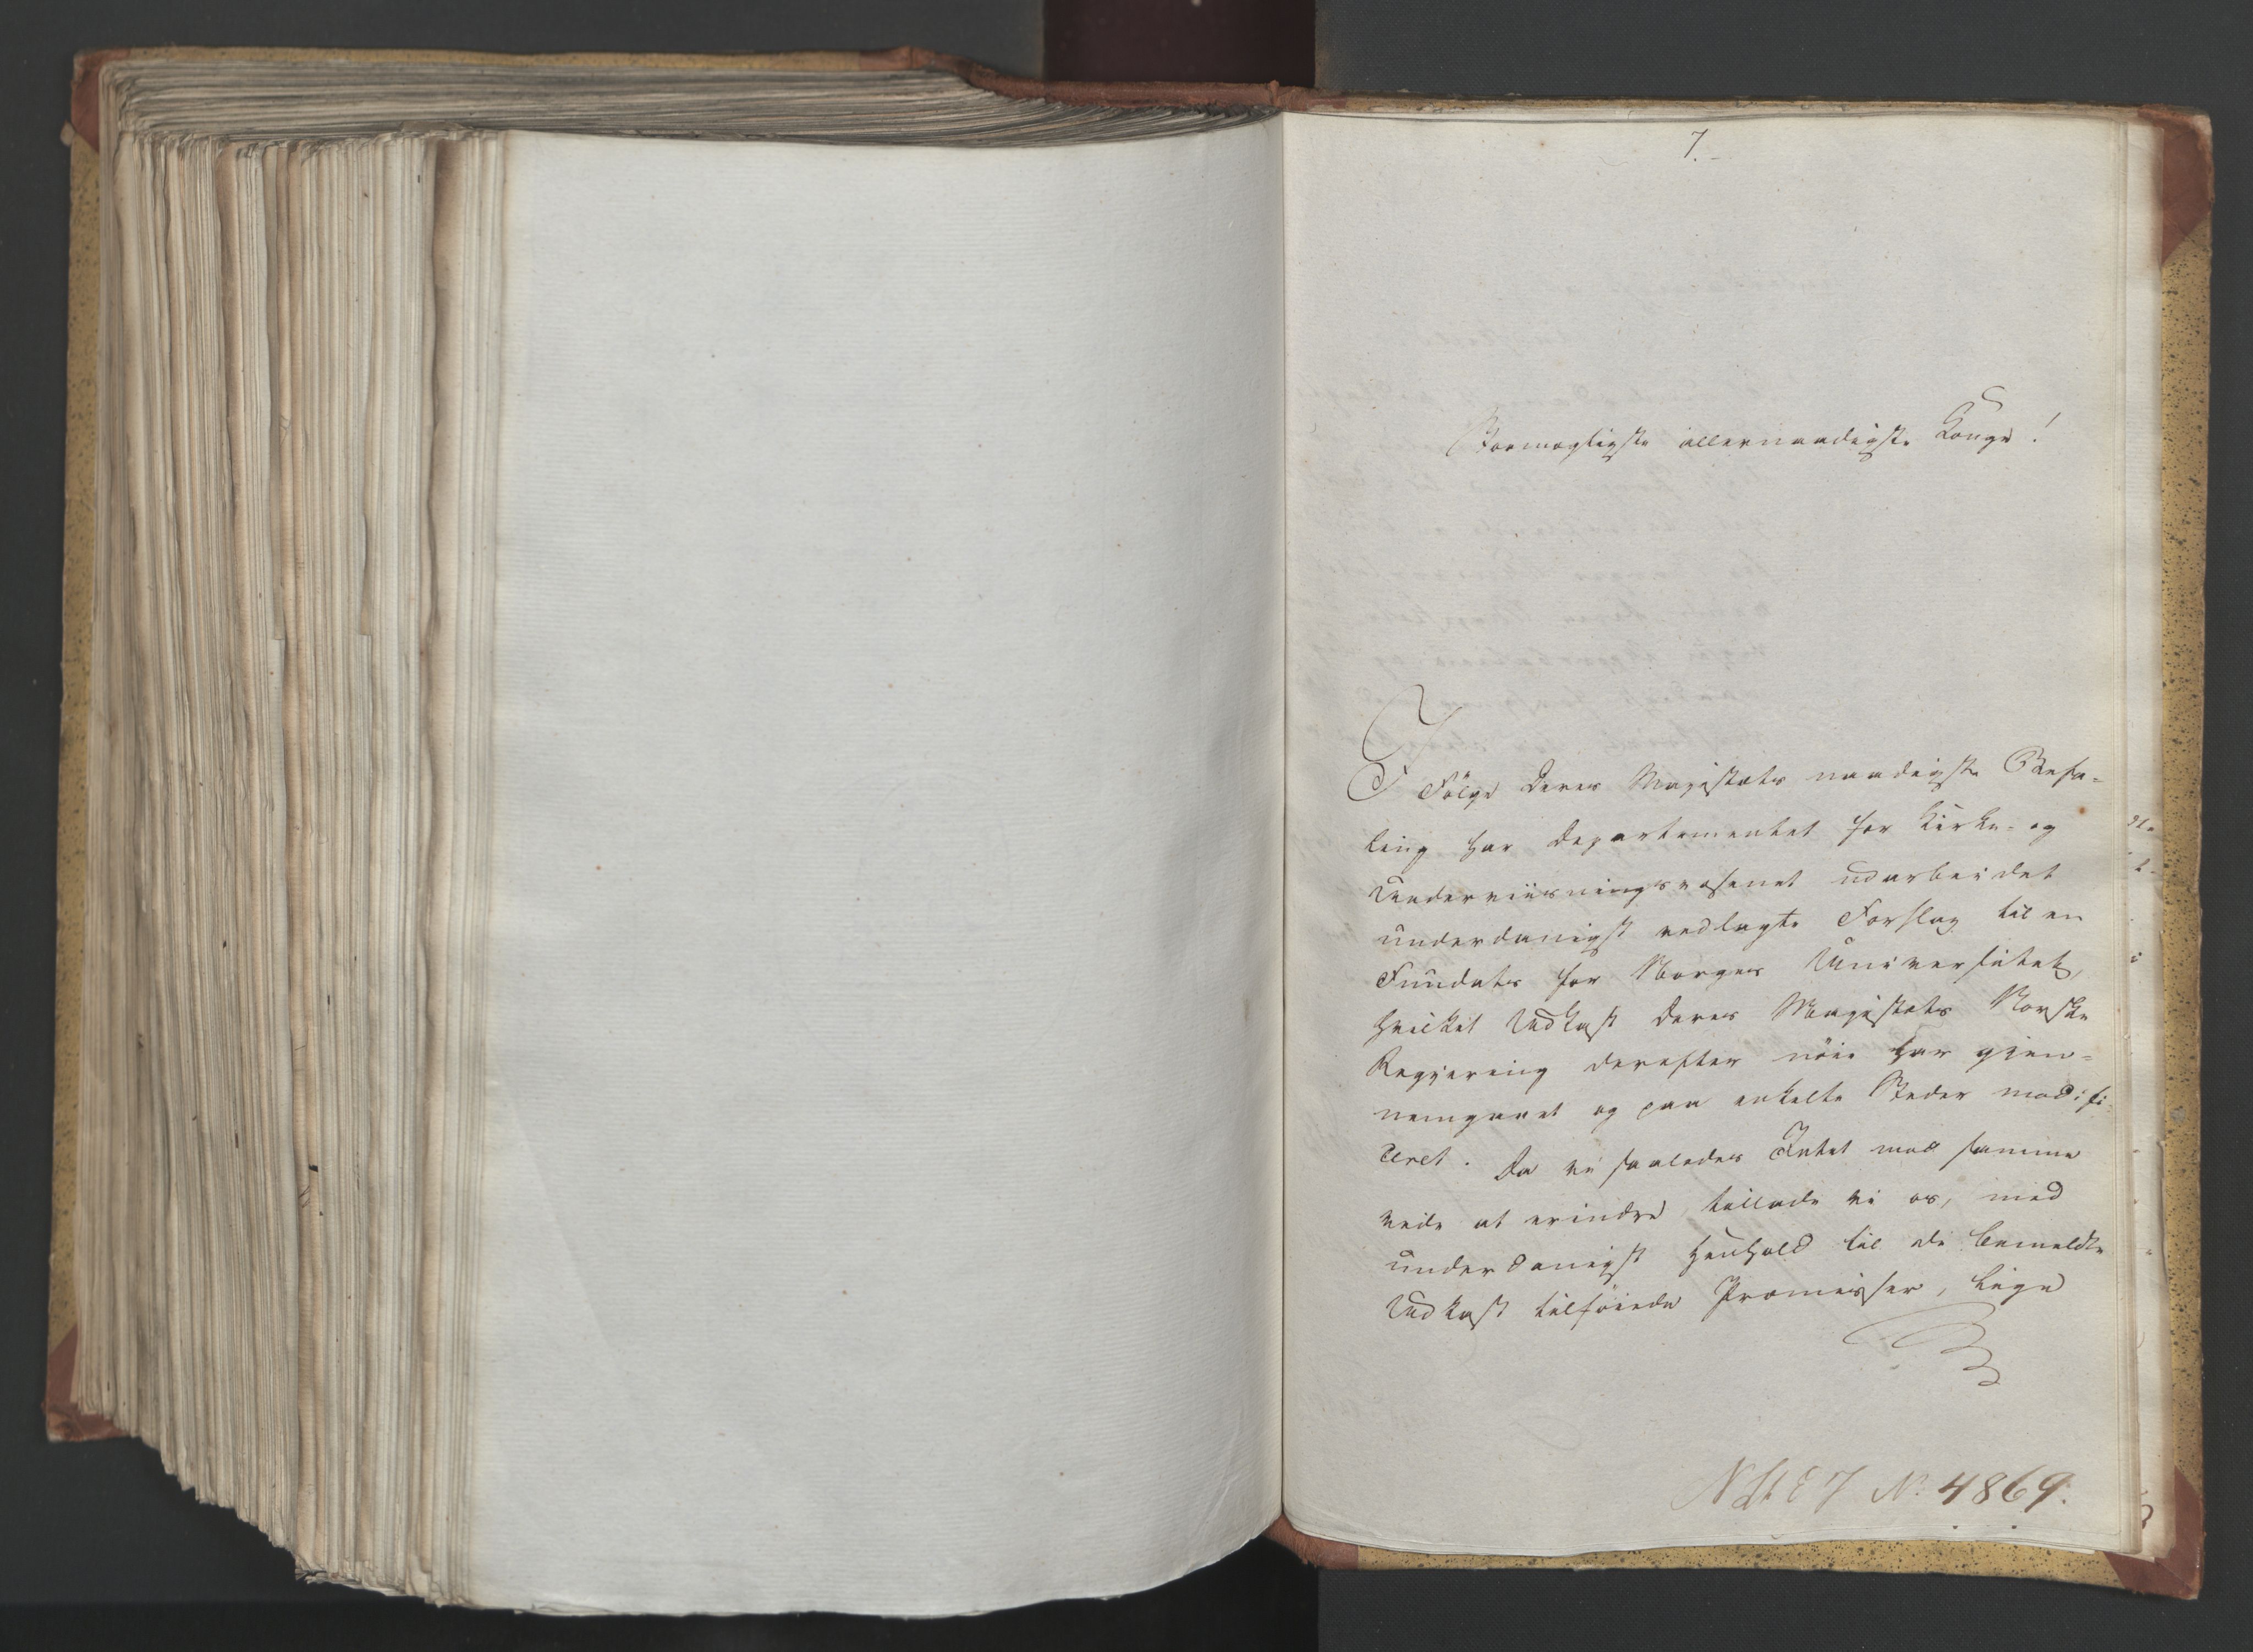 7.
Stormægtigste allernaadigste Konge!
I Følge Deres Majestæts naadigste Befa-
ling har Departementet for Kirke- og
Underviisningsvæsenet udarbeidet
underdanigst vedlagte Forslag til en
Fundats for Norges Universitet,
hvilket Udkast Deres Majestæts Norske
Regjering derefter nöie har gjen-
nemgaaet og paa enkelte Steder modifi-
ceret. Da vi saaledes Intet mod samme
veed at erindre, tillade vi os, med
underdanigst Henhold til de bemeldte
Udkast tilföiede Præmisser, lige
No 4869.